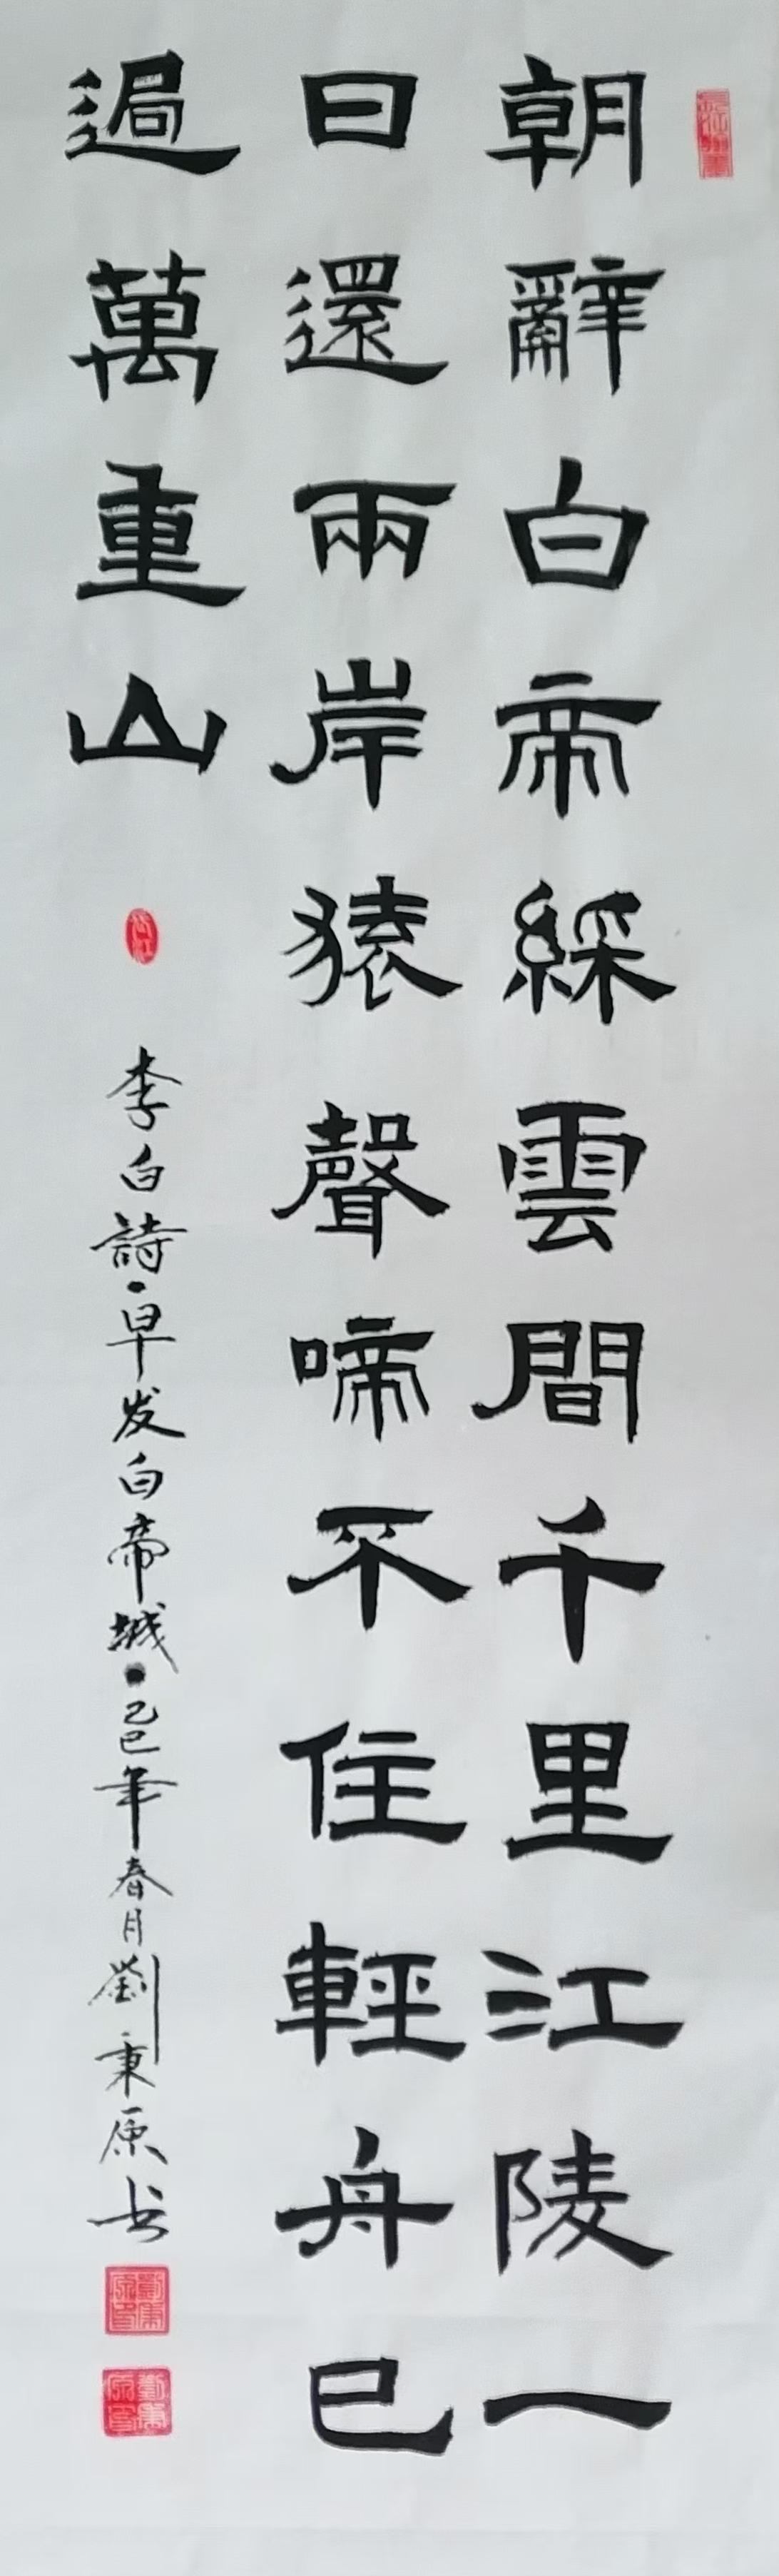 朝辭白帝綵雲間千里江陵一
日還兩岸猿聲啼不住輕舟已
過萬重山
李白詩·早发白帝城·乙巳年春月劉秉原书